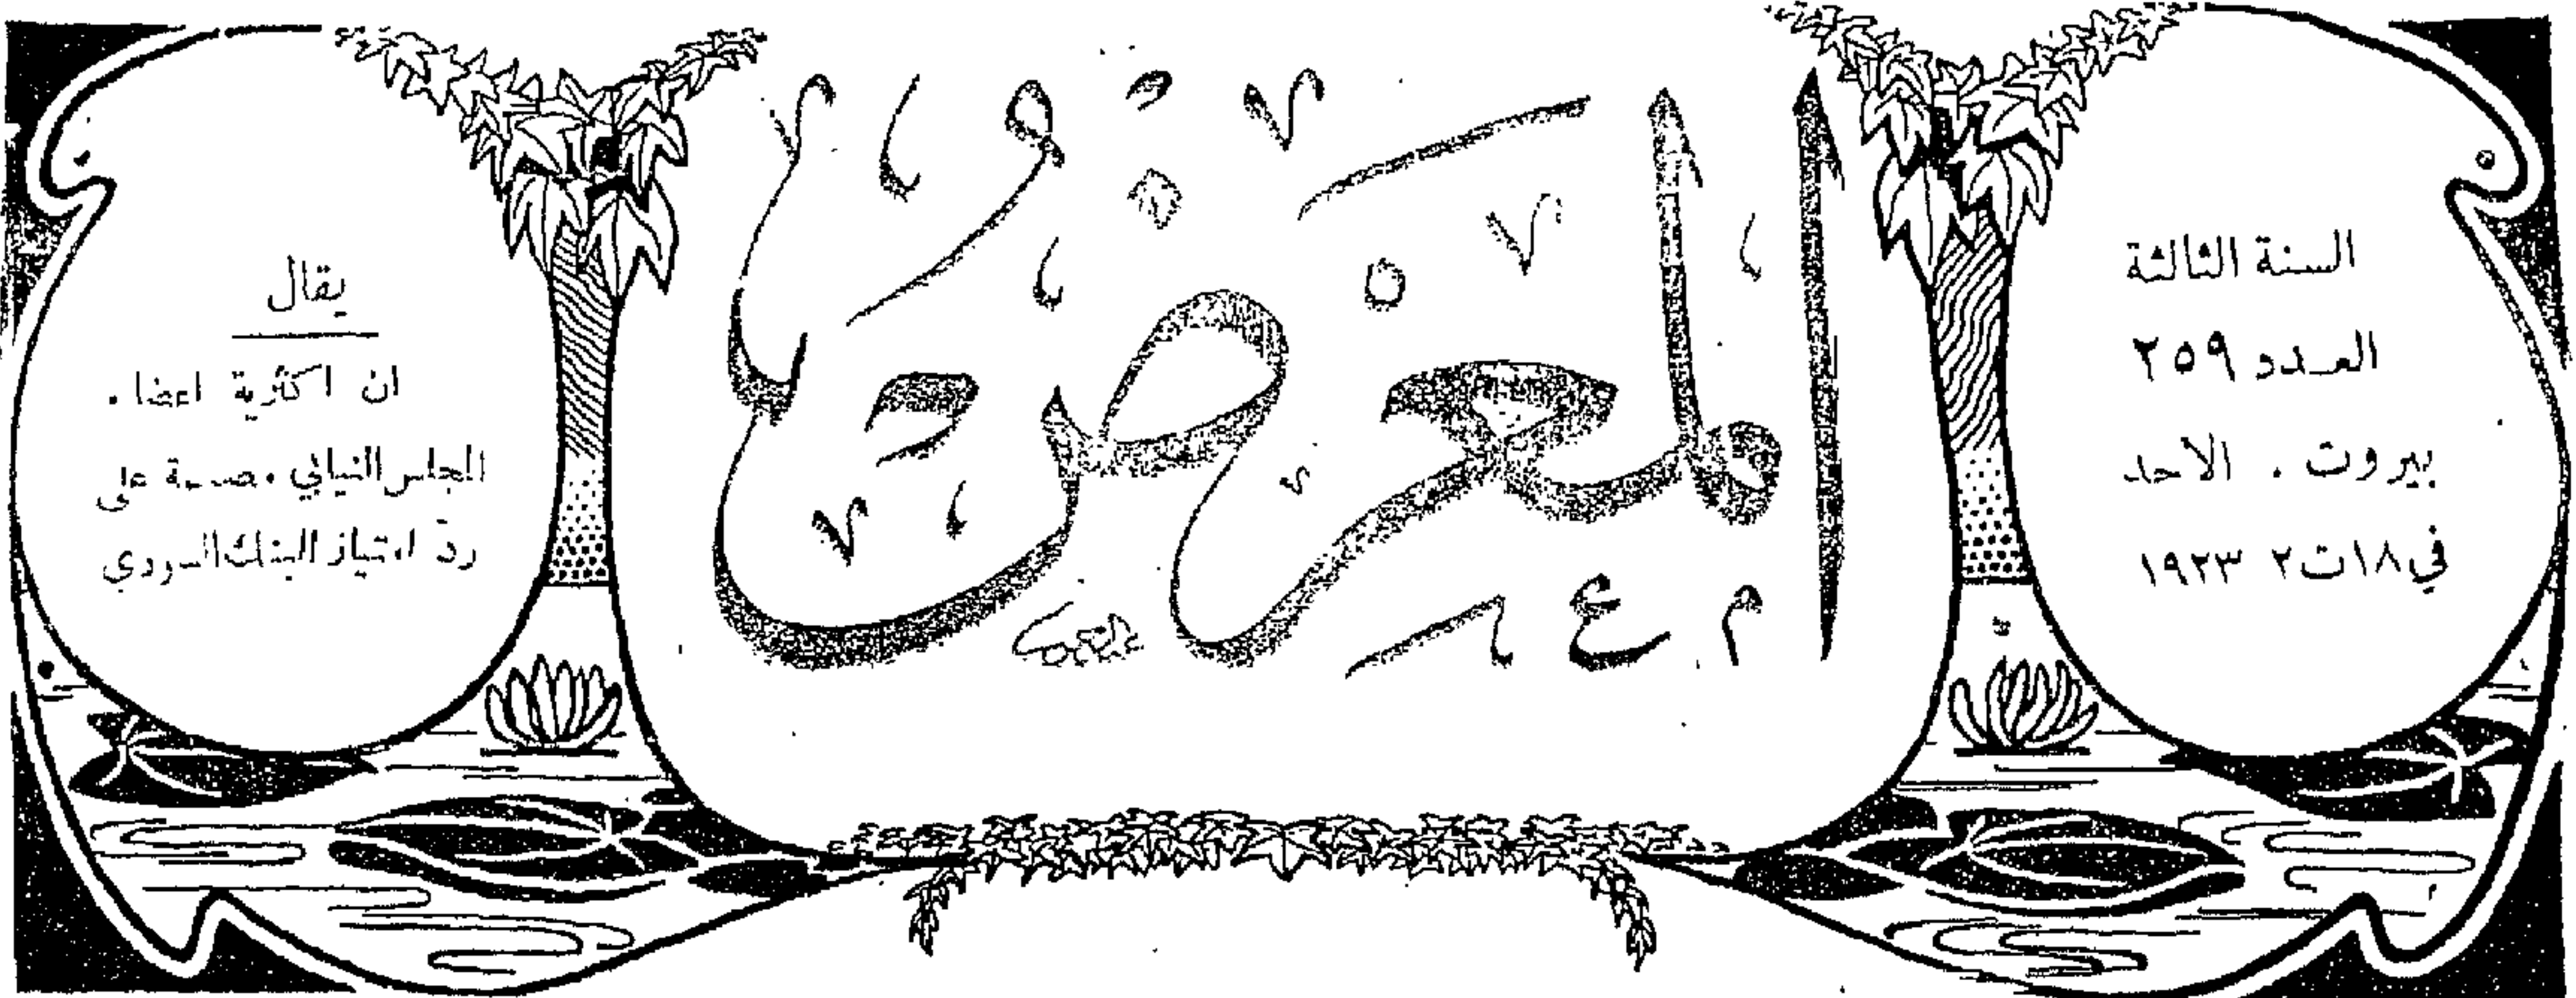 السنة الثالثة
العدد ٢٥٩
بيروت . الاحد
في ١٨ ت٢ ١٩٢٣
المعرض
يقال
ان اكثرية اعضاء
المجلس النيابي مصممة على
رد امتياز البنك السوري